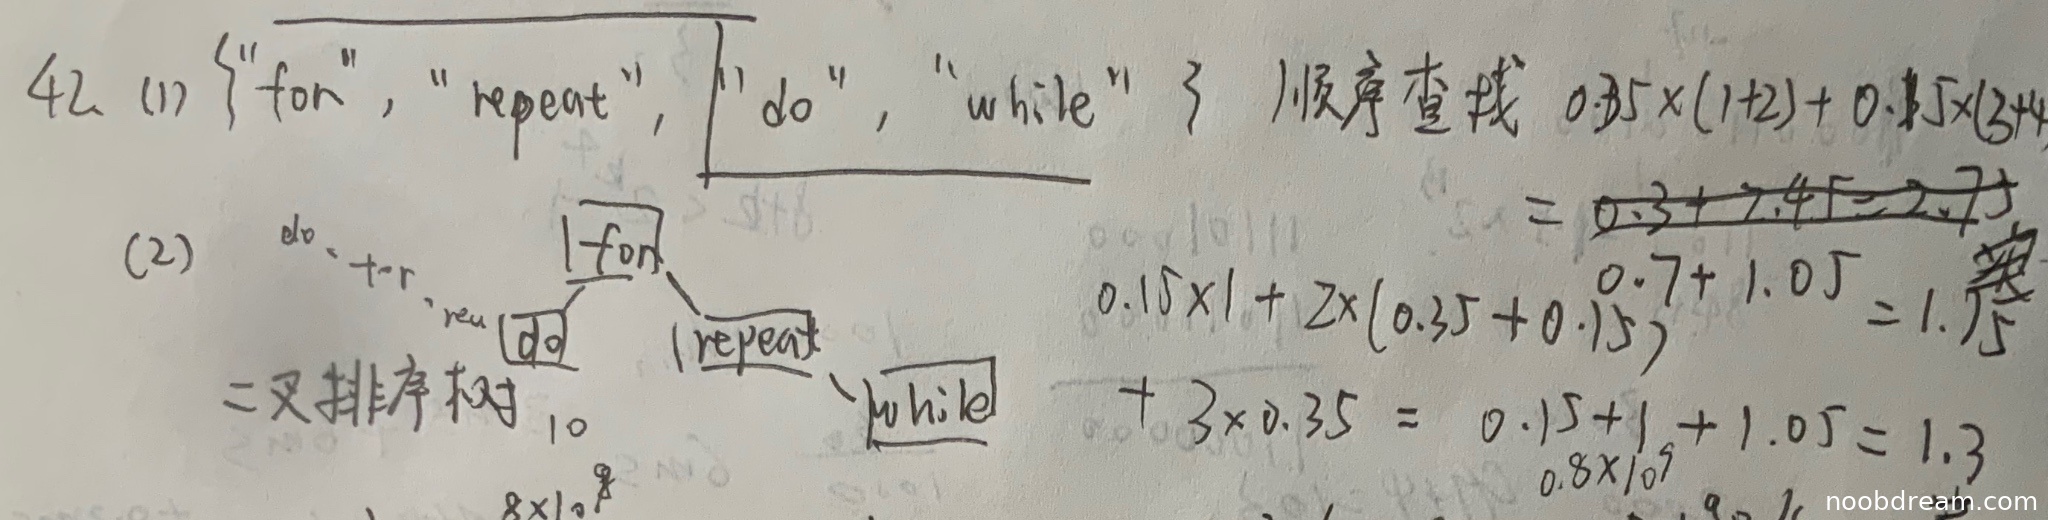 42 (1) {"for", "repeat", "do", "while"} 顺序查找 0.35×(1+2)+0.15×(3+4)
= 0.3+2.45=2.75
0.7+1.05 = 1.75
(2) do
for
0.15×1+2×(0.35+0.15)
do repeat
二叉排序树 while
+3×0.35 = 0.15+1+1.05=1.3
10
0.8×10⁹
8×10
noobdream.com